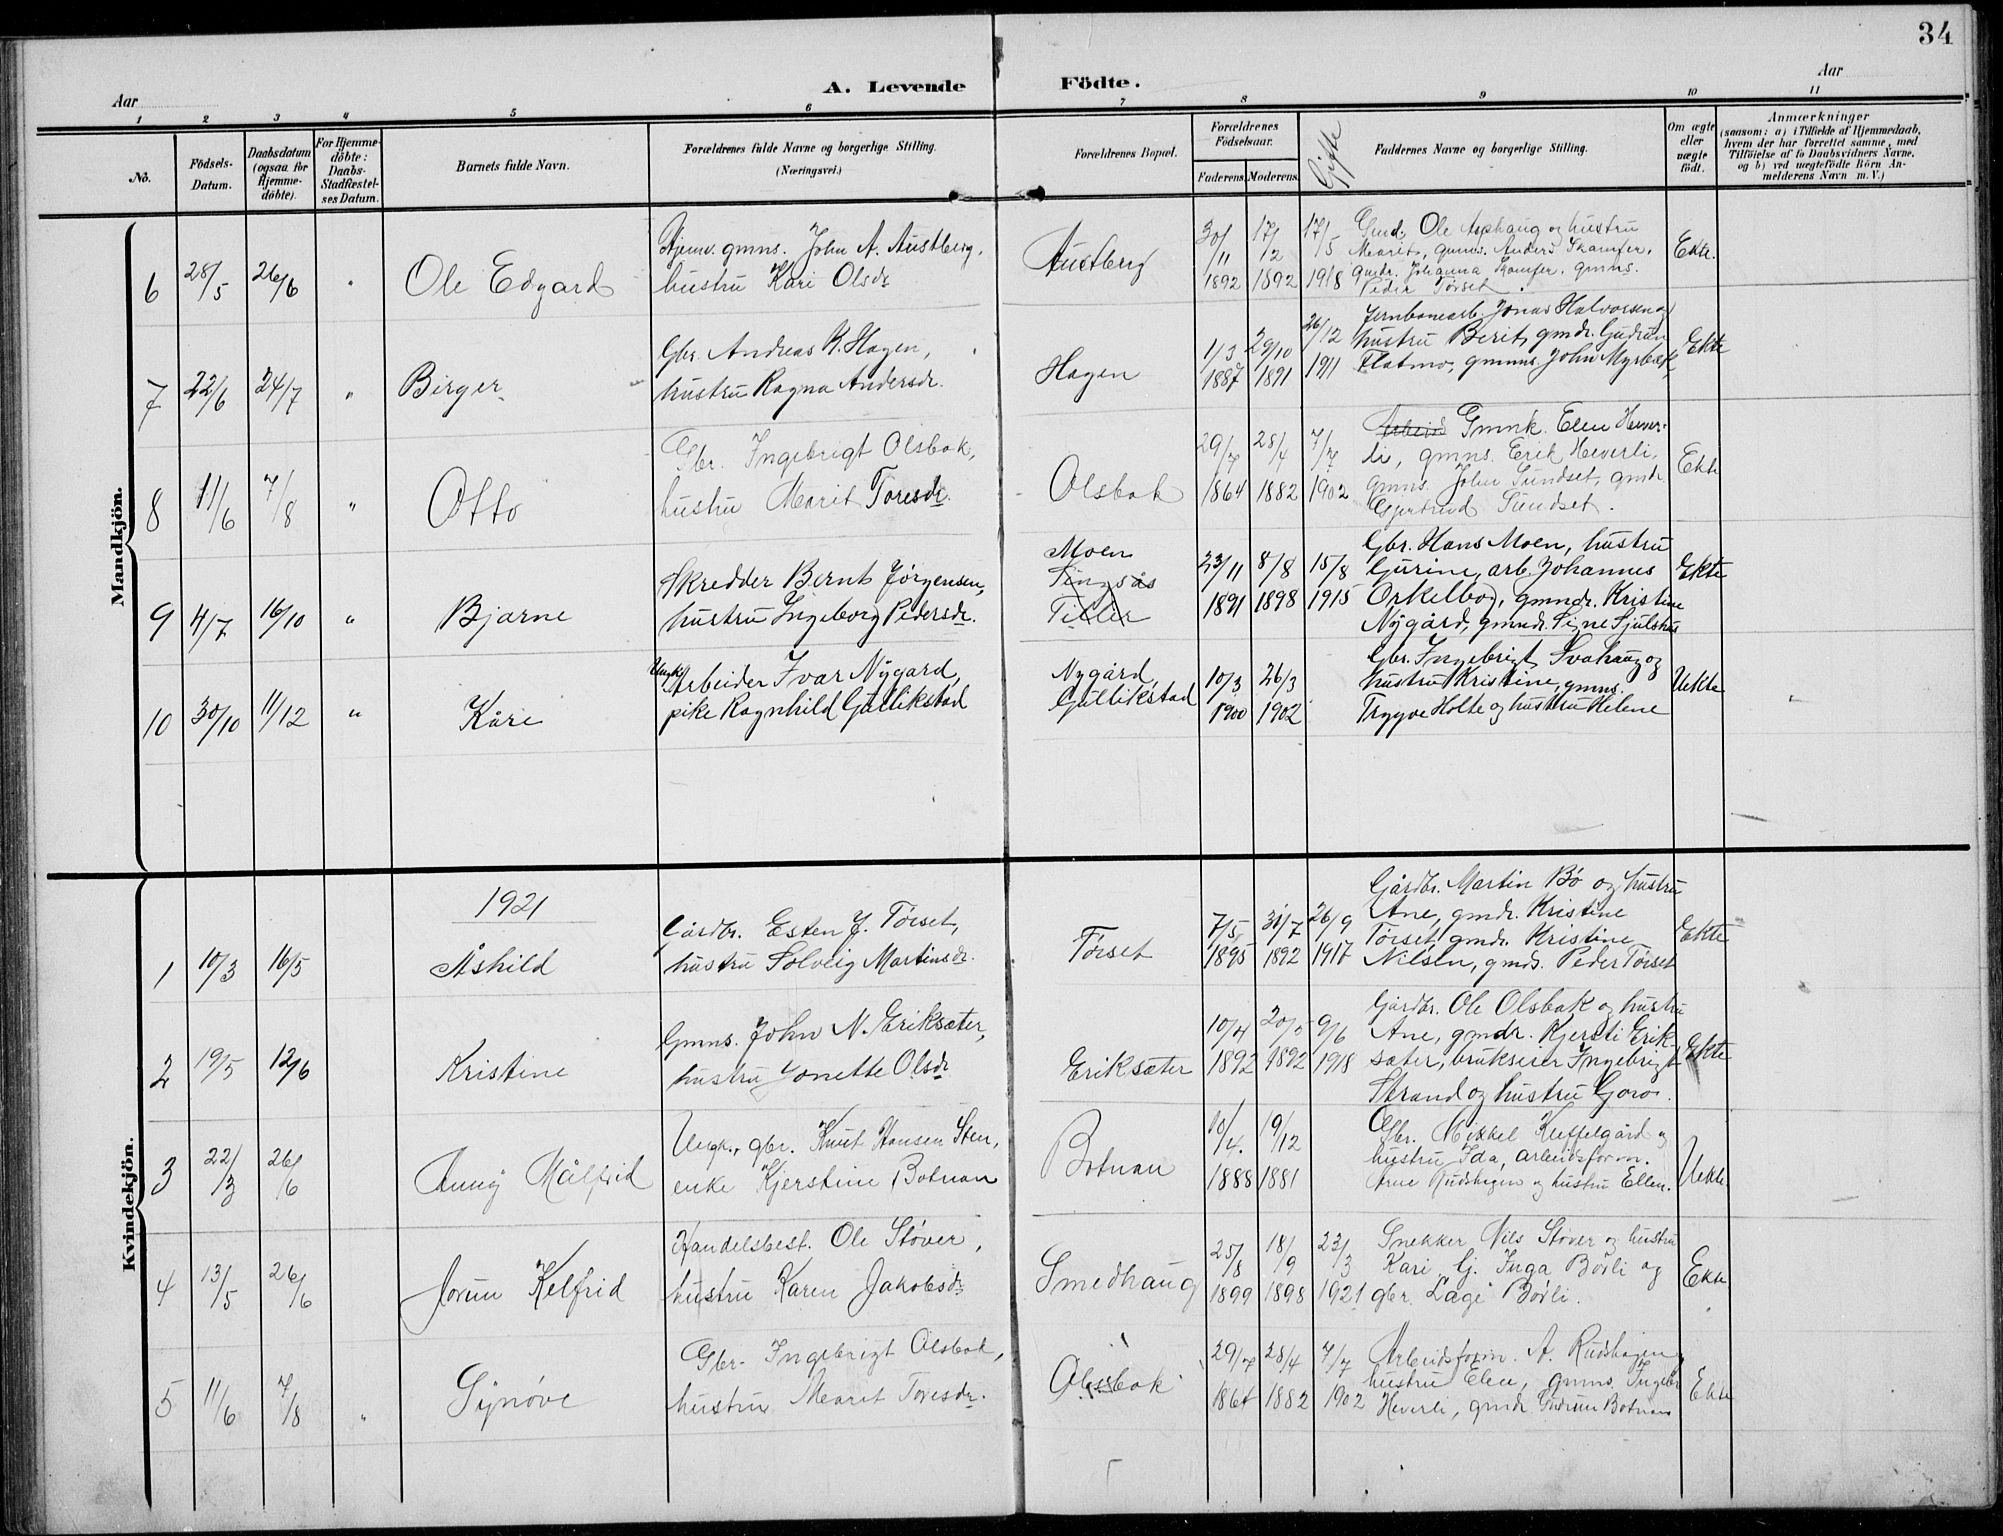 34
A. Levende Födte.
Aar Aar
1 2 3 4 5 6 7 8 9 10 11
Nö.
Födsels-Datum.
Daabsdatum (ogsaa for Hjemmedöbte).
For Hjemmedöbte: Daabs-Stadfæstelses Datum.
Barnets fulde Navn.
Forældrenes fulde Navne og borgerlige Stilling.
(Næringsvei.)
Forældrenes Bopæl.
Forældrenes Födselsaar.
Faderens. Moderens.
Gifte
Faddernes Navne og borgerlige Stilling.
Om ægte eller uægte födt.
Anmærkninger
(saasom: a) i Tilfælde af Hjemmedaab, hvem der har forrettet samme, med Tilföielse af to Daabsvidners Navne, og b) ved uægtefödte Börn Anmelderens Navn m. V.)
Mandkjön.
6 28/5 26/6 " Ole Edgard
Hjemv. gmns. John A. Austberg,
hustru Kari Olsdr.
Austberg
30/11 1892 17/12 1892 17/5 1918
Gmd. Ole Asphaug og hustru
Marit, gmns. Anders Kamfer,
gmdr. Johanna Kamfer, gmns.
Peder Tørset.
Ekte.
7 22/6 24/7 " Birger
Gbr. Andreas K. Hagen,
hustru Ragna Andersdr.
Hagen
1/3 1887 29/10 1891 26/12 1911
Jernbanearb. Jonas Halvorsen og
hustru Berit, gmdr. Gudrun
Flatmo, gmnns. John Myrbæk
Ekte
8 11/6 7/8 " Otto
Gbr. Ingebrigt Olsbak,
hustru Marit Toresdr.
Olsbak
29/7 1864 28/4 1882 7/7 1902
Arbeid Gmnk. Elen Hever-
li, gmns. Erik Heverli,
gmns. John Sundset, gmdr
Gjertrud Sundset.
Ekte
9 4/7 16/10 " Bjarne
Skredder Bernt Jørgensen,
hustru Ingeborg Pedersdr.
Moen
Singsås
Tiller
23/11 1891 8/8 1898 15/8 1915
Gbr. Hans Moen, hustru
Gurine, arb. Johannes
Orkelbog, gmndr. Kristine
Nygård, gmndr. Signe Sjulshus
Ekte
10 30/10 11/12 " Kåre
Ungk. Arbeider Ivar Nygard,
pike Ragnhild Gullikstad
Nygård,
Gullikstad
10/3 1900 26/3 1902
Gbr. Ingebrigt Svahaug og
hustru Kristine, gmns.
Trygve Holte og hustru Helene
Uekte
Kvindekjön.
1921
1 10/3 16/5 Åshild
Gårdbr. Esten J. Tørset,
hustru Solveig Martinsdr.
Tørset
7/5 1895 31/7 1892 26/9 1917
Gårdbr. Martin Bø og hustru
Ane, gmdr. Kristine
Tørset, gmdr. Kristine
Nilsen, gmds. Peder Tørset
Ekte
2 19/5 12/6 Kristine
Gmns. John N. Eriksæter,
hustru Jonette Olsdr
Eriksæter
10/4 1892 20/5 1892 9/6 1918
Gårdbr. Ole Olsbak og hustru
Ane, gmdr. Kjersti Erik-
sæter, brukseier Ingebrigt
Strand og hustru Goro.
Ekte
3 22/3 26/6 Anny Målfrid
Ungk., gbr. Knut Hansen Sten,
enke Kjerstine Botnan
Botnan
10/4. 1888 19/12 1881
Gbr. Mikkel Kleffelgård og
hustru Ida, arbeidsform.
Arne Rudshagen og hustru Ellen.
Uekte
4 13/5 26/6 Jorun Kelfrid
Handelsbest. Ole Støver,
hustru Karen Jakobsdr
Smedhaug
25/8 1899 18/9 1898 23/3 1921
Snekker Nils Støver og hustru
Kari, Gj. Inga Børli og
gbr. Lage Børli.
Ekte
5 11/6 7/8 " Synøve
Gbr. Ingebrigt Olsbak,
hustru Marit Toresdr.
Olsbak
29/7 1864 28/4 1882 7/7 1902
Arbeidsform. A. Rudshagen,
hustru Elen, gmns. Ingebr
Heverli, gmdr. Gudrun Botnan
Ekte